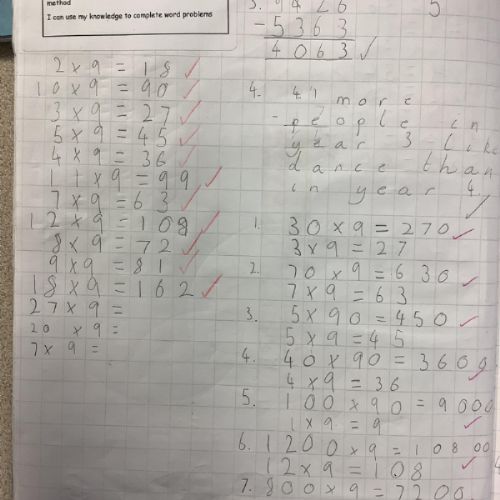 method
I can use my knowledge to complete word problems
2 x 9 = 18
10 x 9 = 90
3 x 9 = 27
5 x 9 = 45
4 x 9 = 36
11 x 9 = 99
7 x 9 = 63
12 x 9 = 108
8 x 9 = 72
9 x 9 = 81
18 x 9 = 162
27 x 9 =
20 x 9 =
7 x 9 =
3. 9426
- 5363
4063
5
4. 41 more
people in
year 3 like
dance than
in year 4.
1. 30 x 9 = 270
3 x 9 = 27
2. 70 x 9 = 630
7 x 9 = 63
3. 5 x 90 = 450
5 x 9 = 45
4. 40 x 90 = 3600
4 x 9 = 36
5. 100 x 90 = 9000
1 x 9 = 9
6. 1200 x 9 = 10800
12 x 9 = 108
7. 800 x 9 = 7200